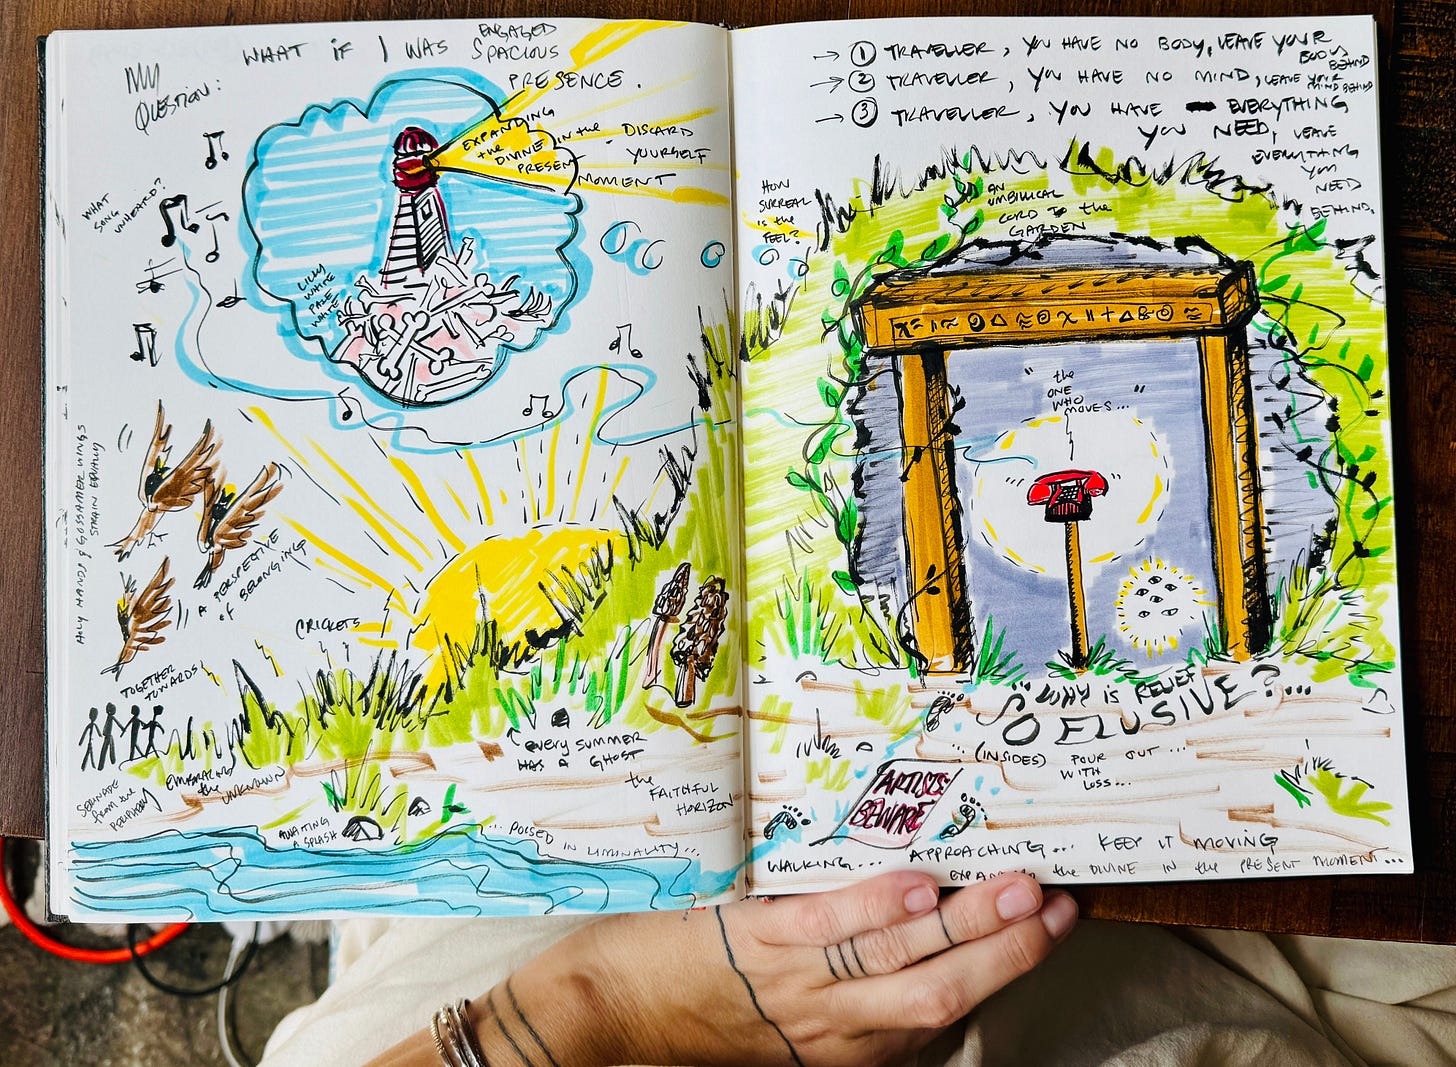 MY
QUESTION:
WHAT IF I WAS ENGAGED SPACIOUS
PRESENCE.
EXPANDING
the DIVINE in the
PRESENT
MOMENT
DISCARD
YOURSELF
WHAT
SONG
UNHEARD?
LILLY
WHITE
PALE
WHITE
HOLY HANDS & GOSSAMER WINGS
STRAIN EQUALLY
A PERSPECTIVE
of BELONGING
CRICKETS
TOGETHER
TOWARDS
SERENADE
from the
PERIPHERY
EMBRACING
the UNKNOWN
AWAITING
A SPLASH
every SUMMER
HAS A GHOST
the
FAITHFUL
HORIZON
... POISED IN LIMINALITY...
→ 1 TRAVELLER, YOU HAVE NO BODY, LEAVE YOUR
BODY
BEHIND
→ 2 TRAVELLER, YOU HAVE NO MIND, LEAVE YOUR
MIND BEHIND
→ 3 TRAVELLER, YOU HAVE EVERYTHING
YOU NEED, LEAVE
EVERYTHING
YOU
NEED
BEHIND.
HOW
SURREAL
is the
FEEL?
AN
UMBILICAL
CORD TO the
GARDEN
"the
ONE
WHO
MOVES..."
WHY IS RELIEF
SO ELUSIVE?...
(INSIDES) POUR OUT...
WITH
LOSS...
ARTISTS:
BEWARE
WALKING... APPROACHING... KEEP IT MOVING
EXPANDING the DIVINE IN the PRESENT MOMENT...